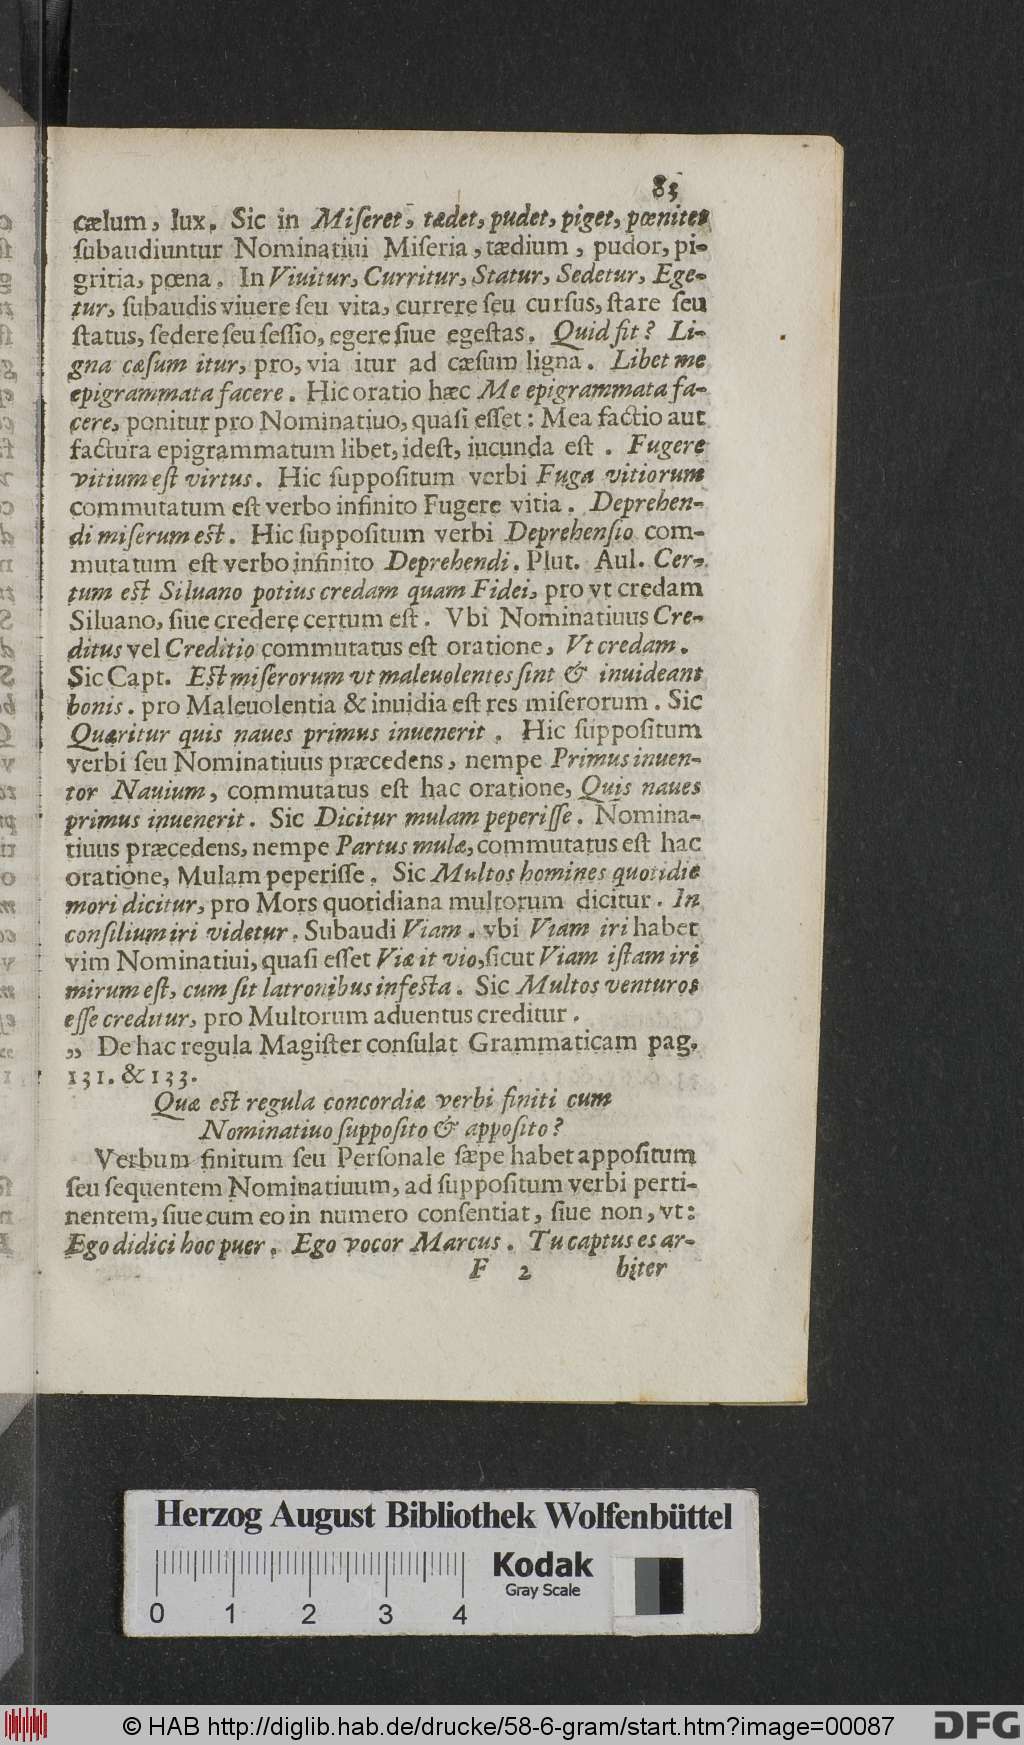 83
cælum, lux. Sic in Miſeret, tædet, pudet, piget, pœnitet
ſubaudiuntur Nominatiui Miſeria, tædium, pudor, pi-
gritia, pœna. In Viuitur, Curritur, Statur, Sedetur, Ege-
tur, ſubaudis viuere ſeu vita, currere ſeu curſus, ſtare ſeu
ſtatus, ſedere ſeu ſeſſio, egere ſiue egeſtas. Quid ſit? Li-
gna cæſum itur, pro, via itur ad cæſum ligna. Libet me
epigrammata facere. Hic oratio hæc Me epigrammata fa-
cere, ponitur pro Nominatiuo, quaſi eſſet: Mea factio aut
factura epigrammatum libet, ideſt, iucunda eſt. Fugere
vitium eſt virtus. Hic ſuppoſitum verbi Fuga vitiorum
commutatum eſt verbo infinito Fugere vitia. Deprehen-
di miſerum eſt. Hic ſuppoſitum verbi Deprehenſio com-
mutatum eſt verbo infinito Deprehendi. Plut. Aul. Cer-
tum eſt Siluano potius credam quam Fidei, pro vt credam
Siluano, ſiue credere certum eſt. Vbi Nominatiuus Cre-
ditus vel Creditio commutatus eſt oratione, Vt credam.
Sic Capt. Eſt miſerorum vt maleuolentes ſint & inuideant
bonis. pro Maleuolentia & inuidia eſt res miſerorum. Sic
Quæritur quis naues primus inuenerit. Hic ſuppoſitum
verbi ſeu Nominatiuus præcedens, nempe Primus inuen-
tor Nauium, commutatus eſt hac oratione, Quis naues
primus inuenerit. Sic Dicitur mulam peperiſſe. Nomina-
tiuus præcedens, nempe Partus mulæ, commutatus eſt hac
oratione, Mulam peperiſſe. Sic Multos homines quotidie
mori dicitur, pro Mors quotidiana multorum dicitur. In
conſilium iri videtur. Subaudi Viam. vbi Viam iri habet
vim Nominatiui, quaſi eſſet Viæ it vio, ſicut Viam iſtam iri
mirum eſt, cum ſit latronibus infeſta. Sic Multos venturos
eſſe creditur, pro Multorum aduentus creditur.
„ De hac regula Magiſter conſulat Grammaticam pag.
131. & 133.
Quæ eſt regula concordiæ verbi finiti cum
Nominatiuo ſuppoſito & appoſito?
Verbum finitum ſeu Perſonale ſæpe habet appoſitum
ſeu ſequentem Nominatiuum, ad ſuppoſitum verbi perti-
nentem, ſiue cum eo in numero conſentiat, ſiue non, vt:
Ego didici hoc puer. Ego vocor Marcus. Tu captus es ar-
F 2 biter
Herzog August Bibliothek Wolfenbüttel
Kodak
Gray Scale
0 1 2 3 4
© HAB http://diglib.hab.de/drucke/58-6-gram/start.htm?image=00087
DFG